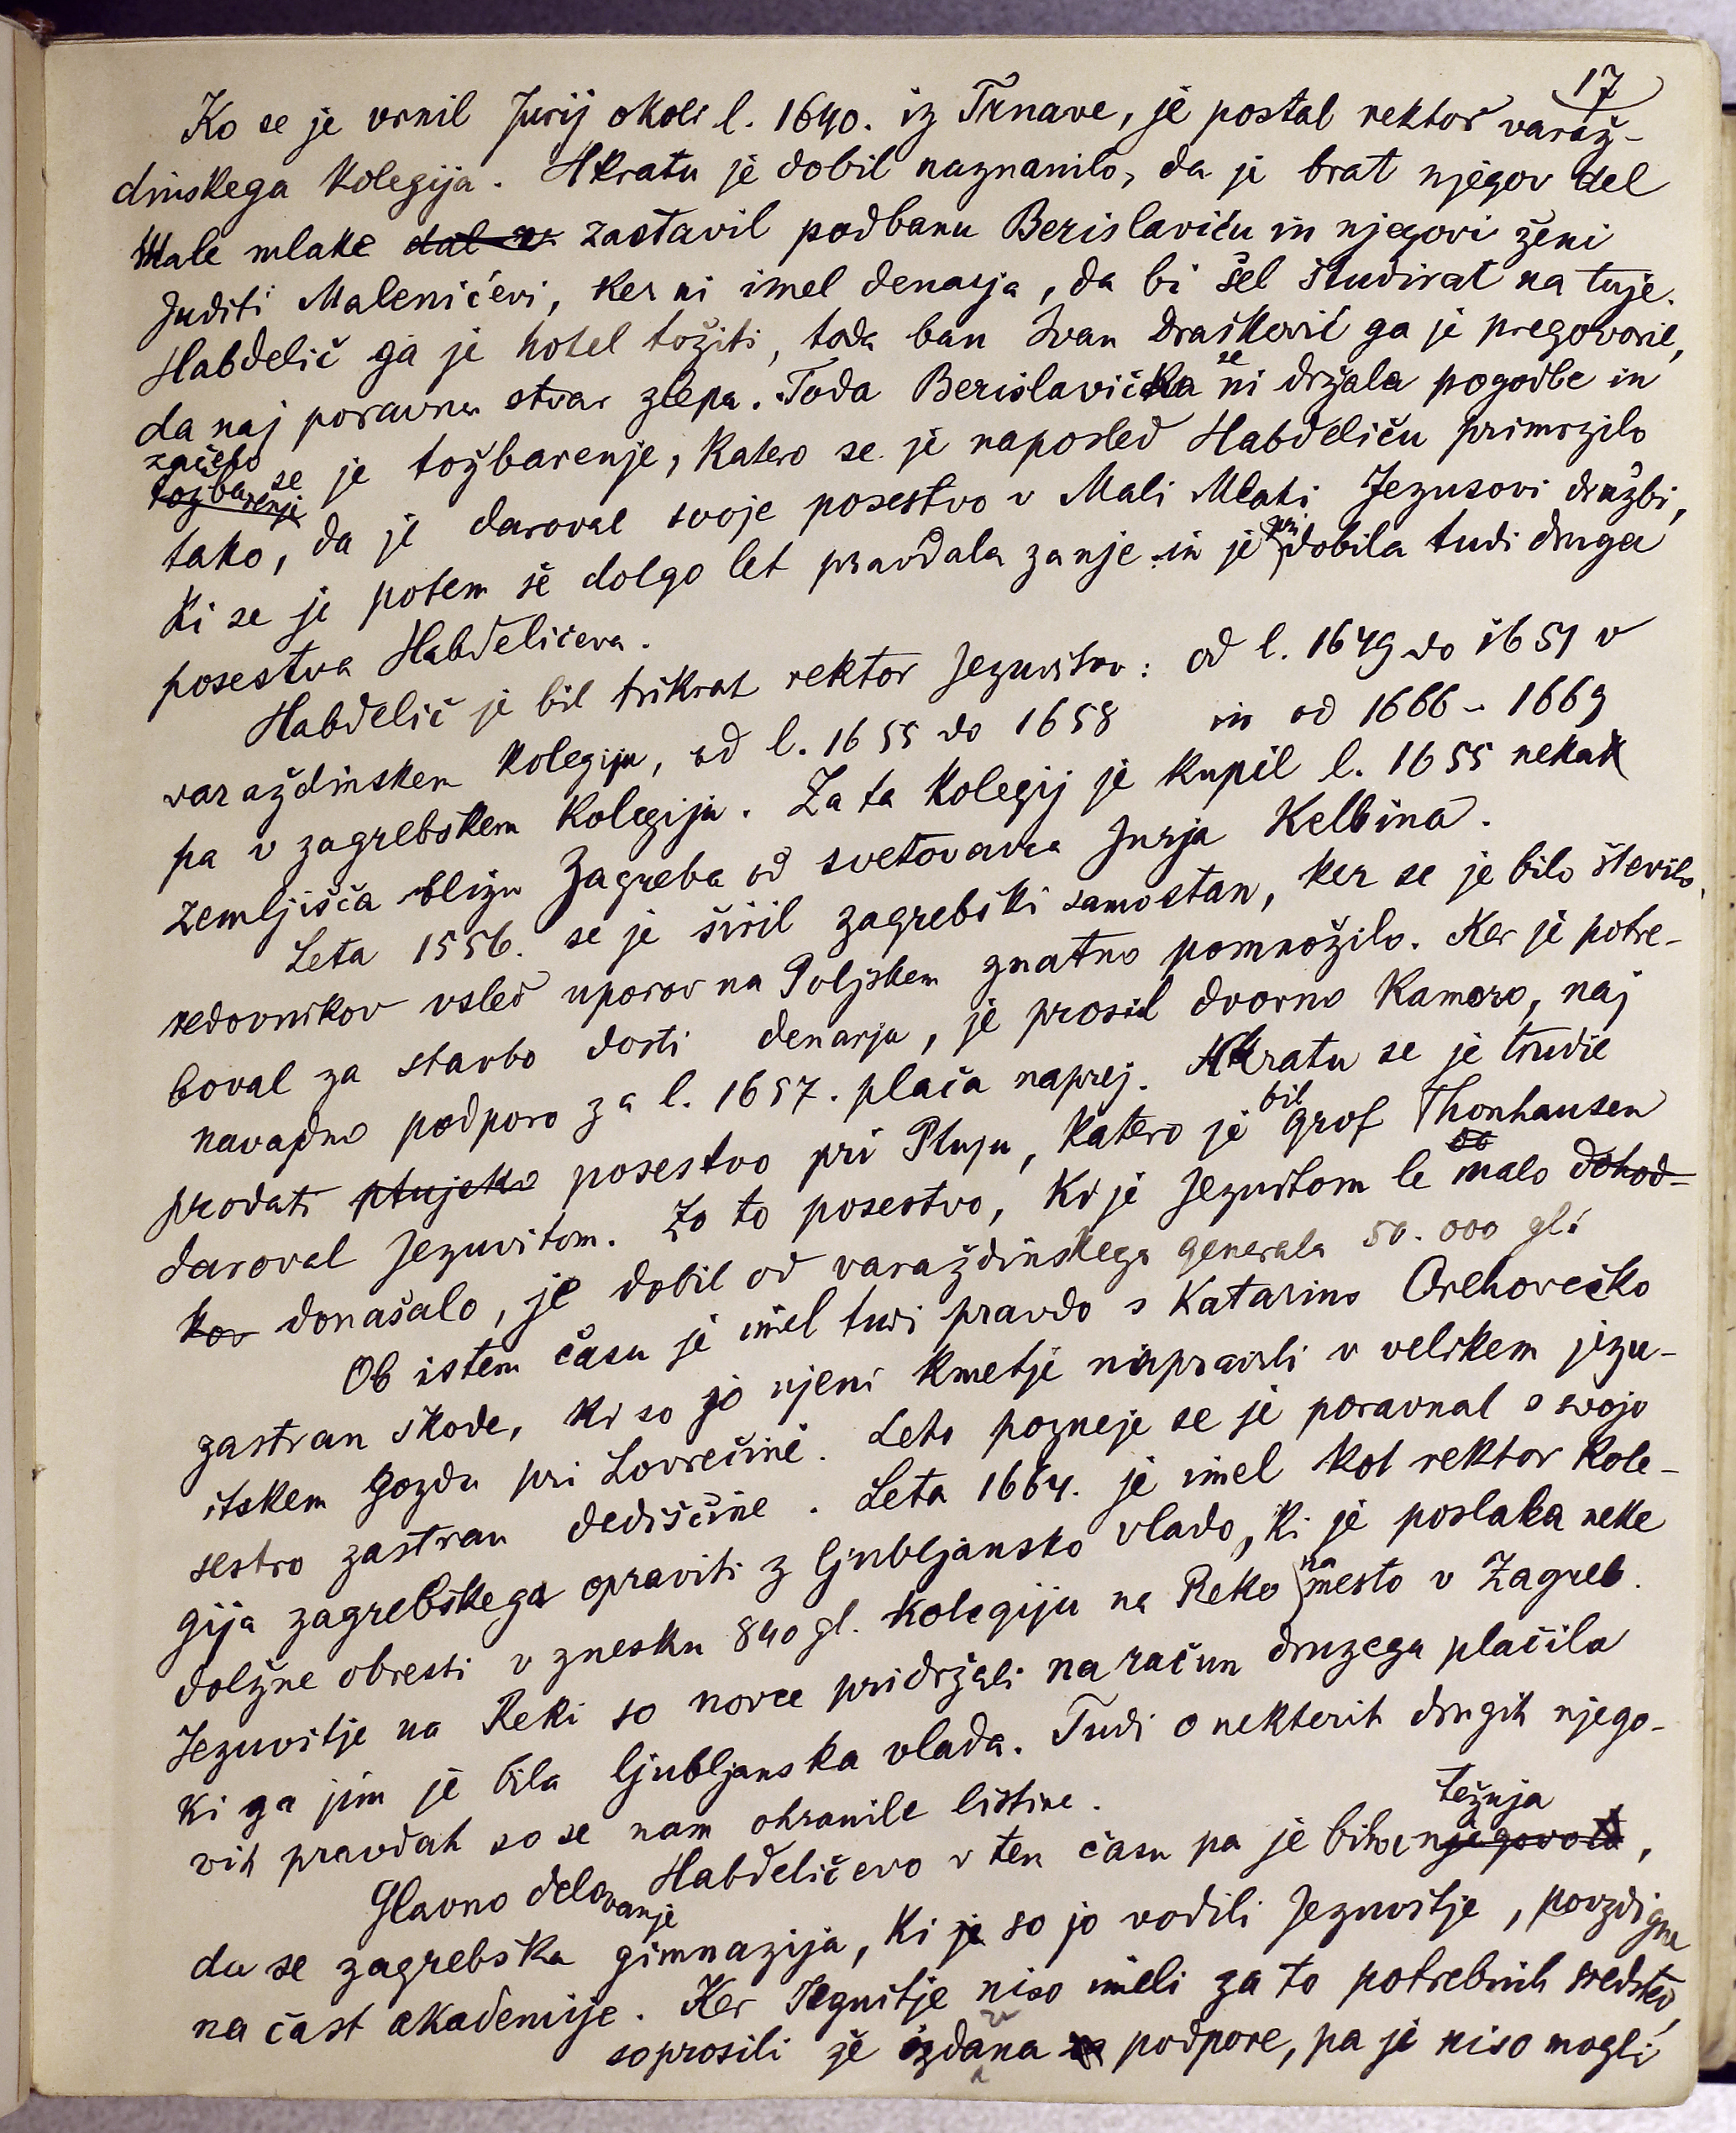 17
Ko se je vrnil Jurij okoli l. 1640. iz Trnave, je postal rektor varaž-
dinskega kolegija. Hkratu je dobil naznanilo, da je brat njegov del
Male mlake dal v zastavil podbanu Berislaviću in njegovi ženi
Juditi Malenićevi, ker ni imel denarja, da bi šel študirat na tuje.
Habdelič ga je hotel tožiti, toda ban Ivan Drašković ga je pregovoril,
da naj poravna stvar zlepa. Toda Berislavička se ni držala pogodbe in
začelo tožbarenje se je tožbarenje, katero se je naposled Habdeliču primrzilo
tako, da je daroval svoje posestvo v Mali Mlaki Jezusovi družbi,
ki se je potem še dolgo let pravdala zanje in je pridobila tudi druga
posestva Habdeličeva.
Habdelič je bil trikrat rektor Jezuvitov: od l. 1649 do 1651 v
varaždinskem kolegiju, od l. 1655 do 1658 in od 1666 - 1669
pa v zagrebškem kolegiju. Za ta kolegij je kupil l. 1655 neka
zemljišča blizu Zagreba od svetovavca Jurja Kelbina.
Leta 1556. se je širil zagrebški samostan, ker se je bilo število
redovnikov vsled uporov na Poljskem znatno pomnožilo. Ker je potre-
boval za stavbo dosti denarja, je prosil dvorno kamoro, naj
navadno podporo za l. 1657. plača naprej. Hkratu se je trudil
prodati ptujsko posestvo pri Ptuju, katero je bil grof Thonhausen
daroval Jezuvitom. Za to posestvo, ki je Jezuitom le malo dohod-
kov donašalo, je dobil od varaždinskega generala 50.000 gl.
Ob istem času je imel tudi pravdo s Katarino Orehovečko
zastran škode, ki so jo njeni kmetje napravili v velikem jezu-
itskem gozdu pri Lovrečine. Leto pozneje se je poravnal s svojo
sestro zastran dediščine. Leta 1664. je imel kot rektor kole-
gija zagrebškega opraviti z ljubljansko vlado, ki je poslala neke
dolžne obresti v znesku 840 gl. kolegiju na Reko namesto v Zagreb.
Jezuvitje na Reki so novce pridržali na račun druzega plačila
ki ga jim je bila ljubljanska vlada. Tudi o nekterih drugih njego-
vih pravdah so se nam ohranile listine.
Glavno delovanje Habdeličevo v tem času pa je bila njegova težnja,
da se zagrebška gimnazija, ki je so jo vodili Jezuvitje, povzdigne
na čast akademije. Ker Jezuitje niso imeli za to potrebnih sredstev,
so prosili že izdana podpore, pa je niso mogli